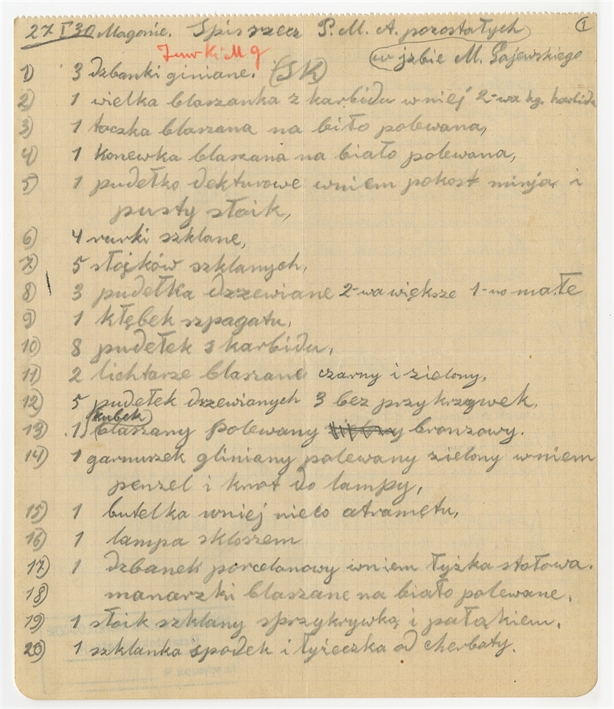 27 I 30 Magonie. Spis rzecz P. M. A. pozostałych ①
w jzbie M. Gajewskiego
1) 3 dzbanki giniane. (JK)
2) 1 wielka blaszanka z karbidu w niej 2-wa kg. karbidu
3) 1 toczka blaszana na biło polewana,
4) 1 konewka blaszana na biało polewana,
5) 1 pudełko dekturowe wniem pokost minja i
pusty słoik,
6) 4 rurki szklane,
7) 5 słojków szklanych,
8) 3 pudełka drzewiane 2-wa większe 1-no małe
9) 1 kłębek szpagatu,
10) 8 pudełek z karbidu,
11) 2 lichtarze blaszane czarny i zielony,
12) 5 pudełek drzewianych 3 bez przykrzywek,
kubek
13) 1 blaszany polewany bronzowy.
14) 1 garnuszek gliniany polewany zielony wniem
penzel i knot do lampy,
15) 1 butelka wniej nieco atramętu,
16) 1 lampa skloszem
17) 1 dzbanek porcelanowy wniem łyżka stołowa.
18) manarzki blaszane na biało polewane,
19) 1 słoik szklany sprzykrywką i pałąkiem,
20) 1 szklanka spodek i łyżeczka od cherbaty.